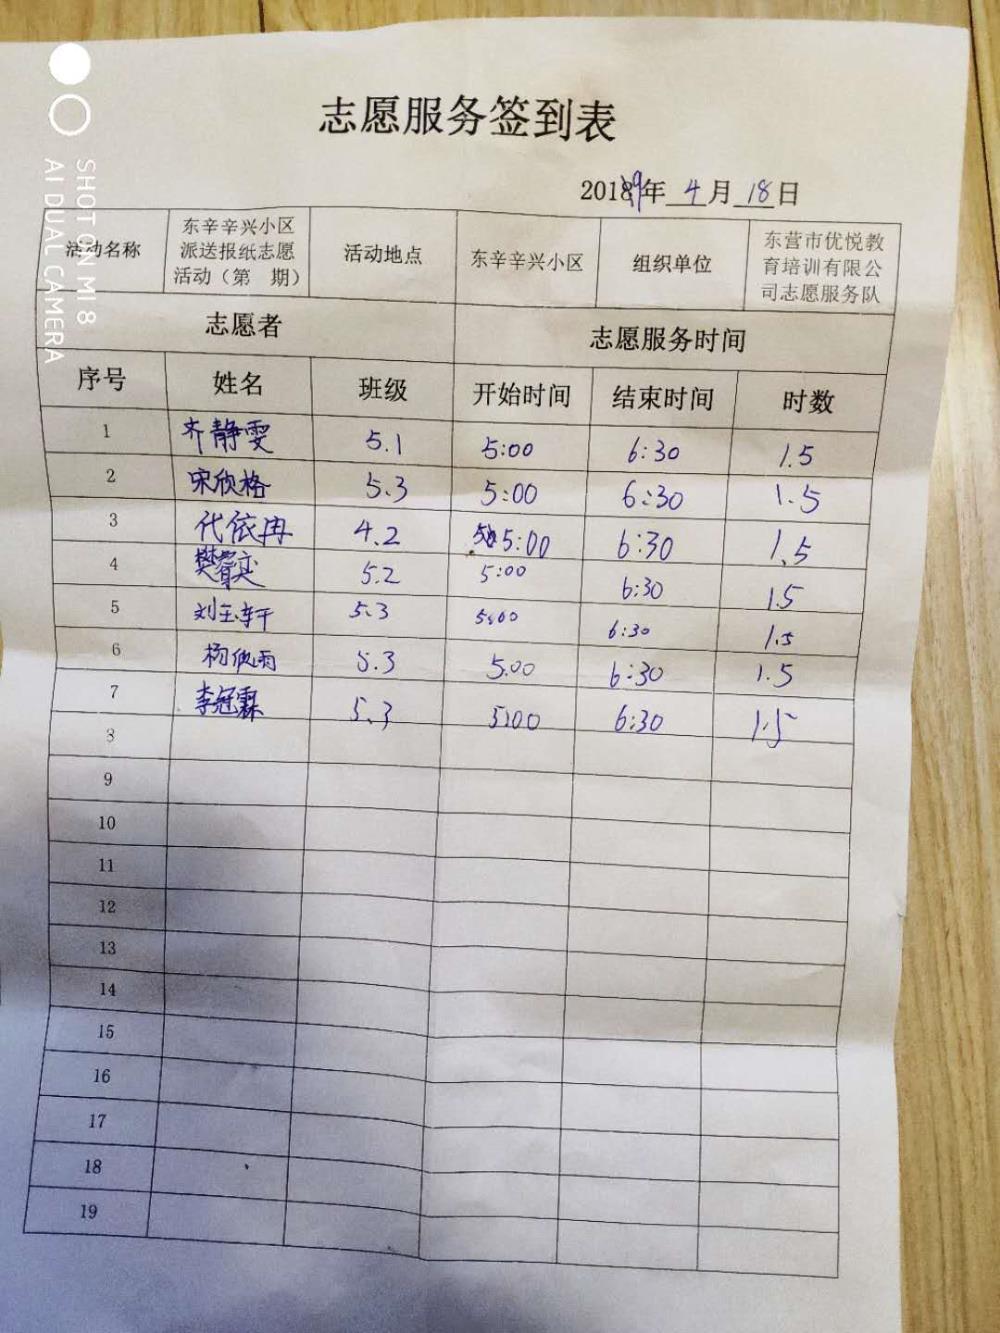 志愿服务签到表
2019年 4 月 18 日
活动名称 东辛辛兴小区派送报纸志愿活动（第 期） 活动地点 东辛辛兴小区 组织单位 东营市优悦教育培训有限公司志愿服务队
志愿者 志愿服务时间
序号 姓名 班级 开始时间 结束时间 时数
1 齐静雯 5.1 5:00 6:30 1.5
2 宋欣格 5.3 5:00 6:30 1.5
3 代依冉 4.2 5:00 6:30 1.5
4 樊睿 5.2 5:00 6:30 1.5
5 刘玉轩 5.3 5:00 6:30 1.5
6 杨欣雨 5.3 5:00 6:30 1.5
7 李冠霖 5.3 5:00 6:30 1.5
8
9
10
11
12
13
14
15
16
17
18
19
SHOT ON MI 8
AI DUAL CAMERA